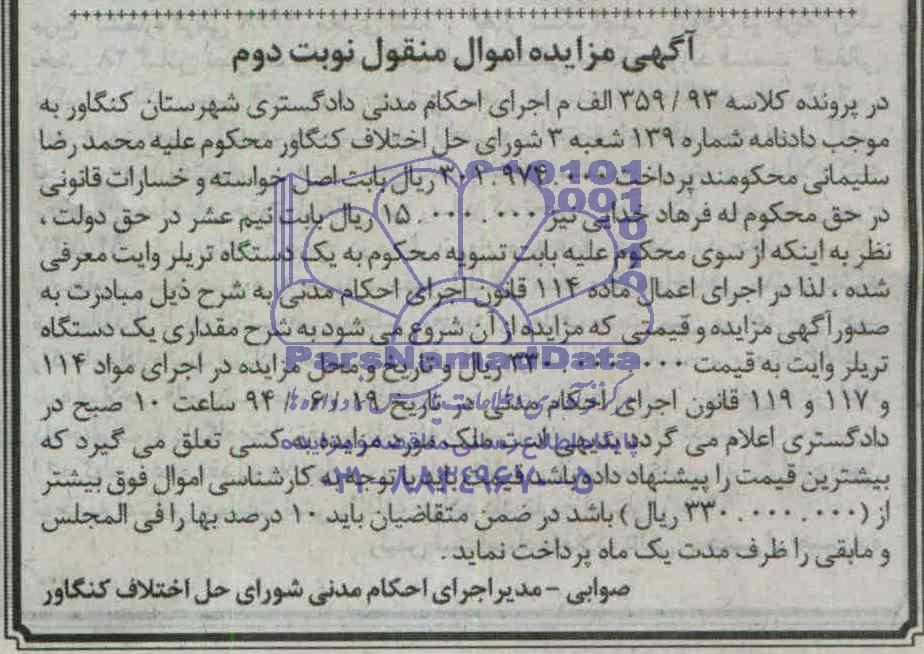 آگهی مزایده اموال منقول نوبت دوم
در پرونده کلاسه ۹۳ / ۳۵۹ الف م اجرای احکام مدنی دادگستری شهرستان کنگاور به
موجب دادنامه شماره ۱۳۹ شعبه ۳ شورای حل اختلاف کنگاور محکوم علیه محمد رضا
سلیمانی محکومند پرداخت ریال بابت اصل خواسته و خسارات قانونی
در حق محکوم له فرهاد خدایی نیز ۱۵.۰۰۰.۰۰۰ ریال بابت نیم عشر در حق دولت ،
نظر به اینکه از سوی محکوم علیه بابت تسویه محکوم به یک دستگاه تریلر وایت معرفی
شده ، لذا در اجرای اعمال ماده ۱۱۴ قانون اجرای احکام مدنی به شرح ذیل مبادرت به
صدور آگهی مزایده و قیمتی که مزایده از آن شروع می شود به شرح مقداری یک دستگاه
تریلر وایت به قیمت ۳۳۰.۰۰۰.۰۰۰ ریال و تاریخ و محل مزایده در اجرای مواد ۱۱۴
و ۱۱۷ و ۱۱۹ قانون اجرای احکام مدنی در تاریخ ۱۹ / ۰۶ / ۹۴ ساعت ۱۰ صبح در
دادگستری اعلام می گردد بدیهی است ملک مورد مزایده به کسی تعلق می گیرد که
بیشترین قیمت را پیشنهاد داده باشد قیمت باید با توجه به کارشناسی اموال فوق بیشتر
از ( ۳۳۰.۰۰۰.۰۰۰ ریال ) باشد در ضمن متقاضیان باید ۱۰ درصد بها را فی المجلس
و مابقی را ظرف مدت یک ماه پرداخت نماید .
صوابی - مدیر اجرای احکام مدنی شورای حل اختلاف کنگاور
ParsNamadData